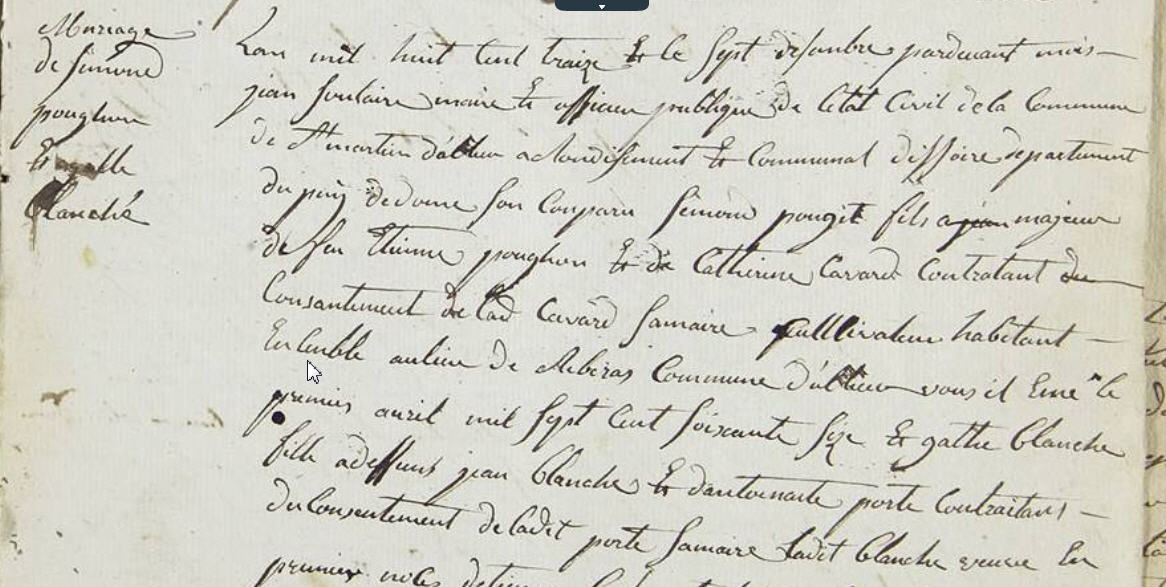 Mariage
de Simond
poughon
Et gatte
blanche
Lan mil huit Cent traize Et le Sept desanbre pardevant mois
jean Soulaire maire Et officier publique de Létat Civil de la Commune
de St martin arondisement Et Communal dissoire departement
du puy de dome Son Conparu Simond pougit fils majeur
de feu Etienne poughon Et de Catherine Cavard Contratant du
Consantement de Lad Cavard Samaire Cullivateur habitant
Ensenble aulieu de Commune le
premier avril mil Sept Cent Soixante Size Et gatte blanche
fille adeffuns jean blanche Et dantoinaite porte Contraitans
du Consentement de ladit porte Samaire Ladit blanche veuve En
premier noces